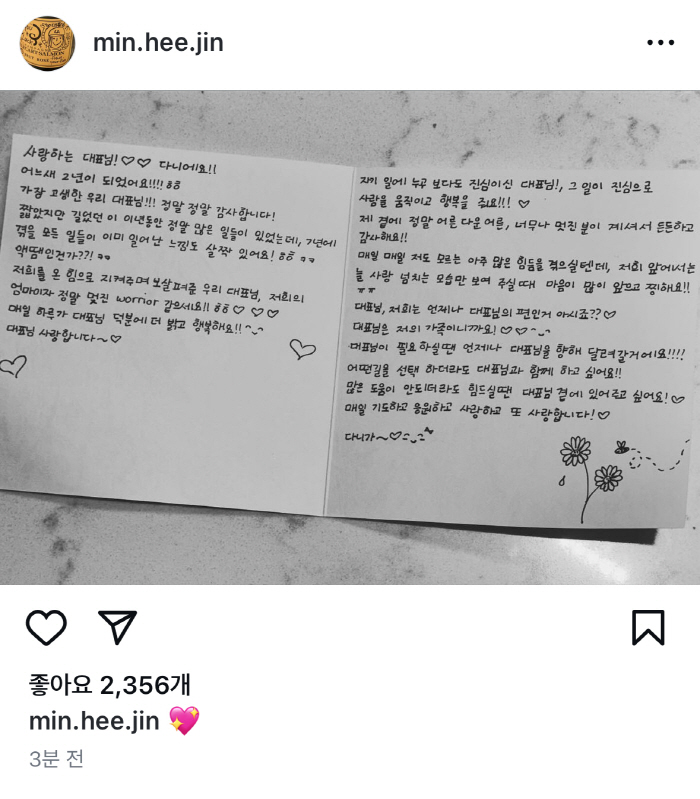 min.hee.jin
사랑하는 대표님!♡♡ 다니에요!!
어느새 2년이 되었어요!!!!
가장 고생한 우리 대표님!!! 정말 정말 감사합니다!
짧았지만 길었던 이 이년동안 정말 많은 일들이 있었는데, 7년에
겪을 모든 일들이 이미 일어난 느낌도 살짝 있어요!
액땜인건가??!
저희를 온 힘으로 지켜주며 보살펴준 우리 대표님, 저희의
엄마이자 정말 멋진 worrior 같으세요!! ♡ ♡ ♡
매일 하루가 대표님 덕분에 더 밝고 행복해요!!
대표님 사랑합니다~♡
자기 일에 누구 보다도 진심이신 대표님!, 그 일이 진심으로
사람을 움직이고 행복을 줘요!!! ♡
제 곁에 정말 어른 다운 어른, 너무나 멋진 분이 계셔서 든든하고
감사해요!!
매일 매일 저도 모르는 아주 많은 힘듦을 겪으실텐데, 저희 앞에서는
늘 사랑 넘치는 모습만 보여 주실때 마음이 많이 아프고 찡해요!!
ㅠㅠ
대표님, 저희는 언제나 대표님의 편인거 아시죠??♡
대표님은 저의 가족이니까요!♡♡
대표님이 필요하실땐 언제나 대표님을 향해 달려갈거에요!!!!
어떤길을 선택 하더라도 대표님과 함께 하고 싶어요!!
많은 도움이 안되더라도 힘드실땐 대표님 곁에 있어주고 싶어요!♡
매일 기도하고 응원하고 사랑하고 또 사랑합니다!♡
다니가~♡
좋아요 2,356개
min.hee.jin 💖
3분 전